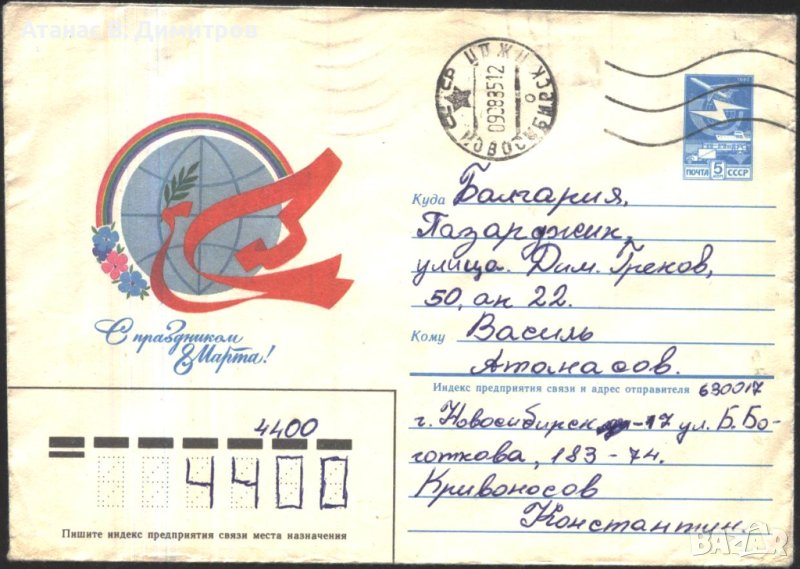 Атанас В. Димитров
СССР ЦПЖД
НОВОСИБИРСК
09038512
ПОЧТА 5 КОП СССР
Куда Болгария,
Пазарджик,
улица. Дим. Греков,
50, ап 22.
Кому Василь
Атанасов.
Индекс предприятия связи и адрес отправителя 630017
г. Новосибирск -17 ул. Б. Бо-
готкова, 183 - 74.
Кривоносов
Константин.
С праздником
8 Марта!
4400
4400
Пишите индекс предприятия связи места назначения
BAZAR